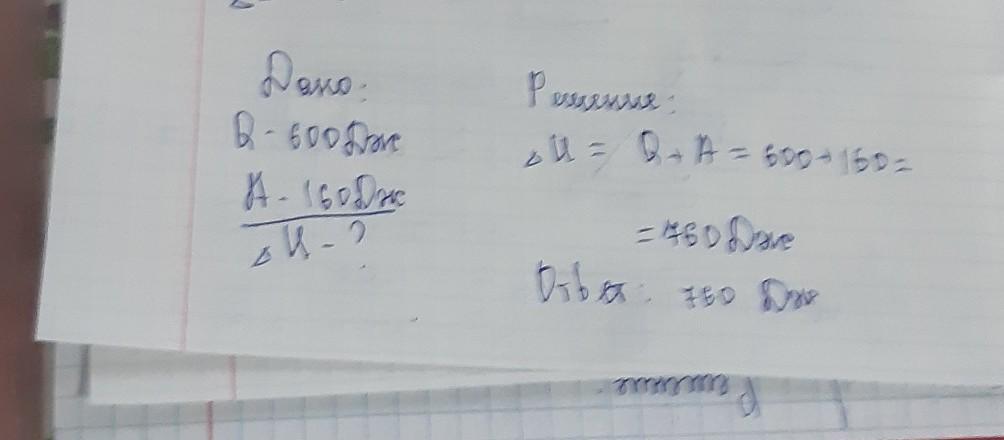 Дано:
Q - 600 Дж
A - 160 Дж
ΔU - ?
Решение:
ΔU = Q + A = 600 + 160 =
= 760 Дж
Ответ: 760 Дж
Решение